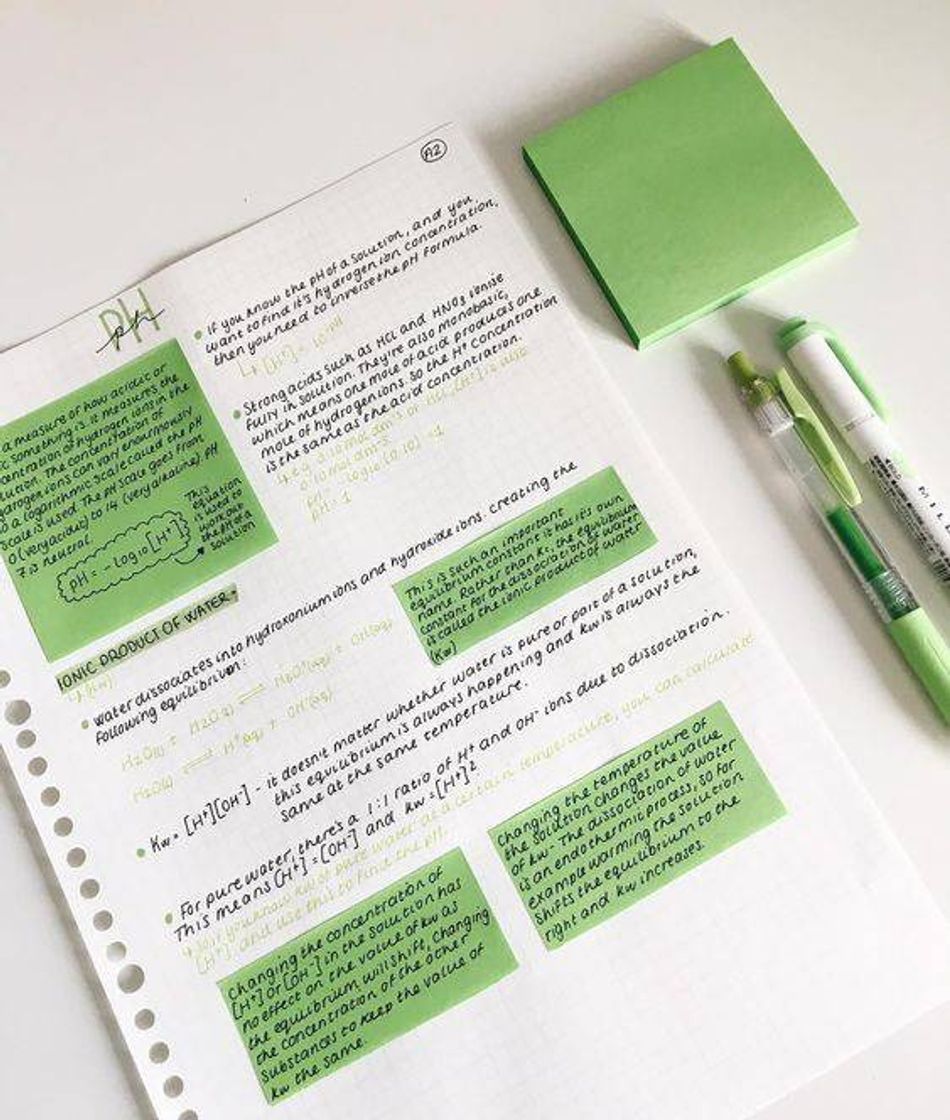 A2
pH
ph
a measure of how acidic or
something is. it measures the
concentration of hydrogen ions in the
The concentration of
hydrogen ions can vary enourmously
so a logarithmic scale called the pH
scale is used. The pH scale goes from
0 (very acidic) to 14 (very alkaline) pH
7 is neutral
pH = -log10[H+]
This
equation
is used to
work out
the pH of a
solution
If you know the pH of a solution, and you
want to find it's hydrogen ion concentration,
then you need to inverse the pH formula.
↳ [H+] = 10-pH
Strong acids such as HCl and HNO3 ionise
fully in solution. They're also monobasic,
which means one mole of acid produces one
mole of hydrogen ions. So the H+ concentration
is the same as the acid concentration.
↳ e.g. 0.10 mol dm-3 of HCl, [H+] is also
0.10 mol dm-3
pH = -log10(0.10) = 1
pH = 1
IONIC PRODUCT OF WATER -
↳ (Kw)
water dissociates into hydroxonium ions and hydroxide ions. creating the
following equilibrium:
H2O(l) + H2O(l) ⇌ H3O+(aq) + OH-(aq)
H2O(l) ⇌ H+(aq) + OH-(aq)
This is such an important
equilibrium constant it has it's own
name. Rather than Kc, the equilibrium
constant for the dissociation of water
is called the ionic product of water
(Kw)
Kw = [H+][OH-] - it doesn't matter whether water is pure or part of a solution,
this equilibrium is always happening and Kw is always the
same at the same temperature.
For pure water, there's a 1:1 ratio of H+ and OH- ions due to dissociation.
This means [H+] = [OH-] and Kw = [H+]2
↳ so if you know Kw of pure water at a certain temperature, you can calculate
[H+] and use this to find the pH.
Changing the concentration of
[H+] or [OH-] in the solution has
no effect on the value of Kw as
the equilibrium will shift, changing
the concentration of the other
substances to keep the value of
Kw the same.
Changing the temperature of
the solution changes the value
of Kw - The dissociation of water
is an endothermic process, so for
example warming the solution
shifts the equilibrium to the
right and Kw increases.